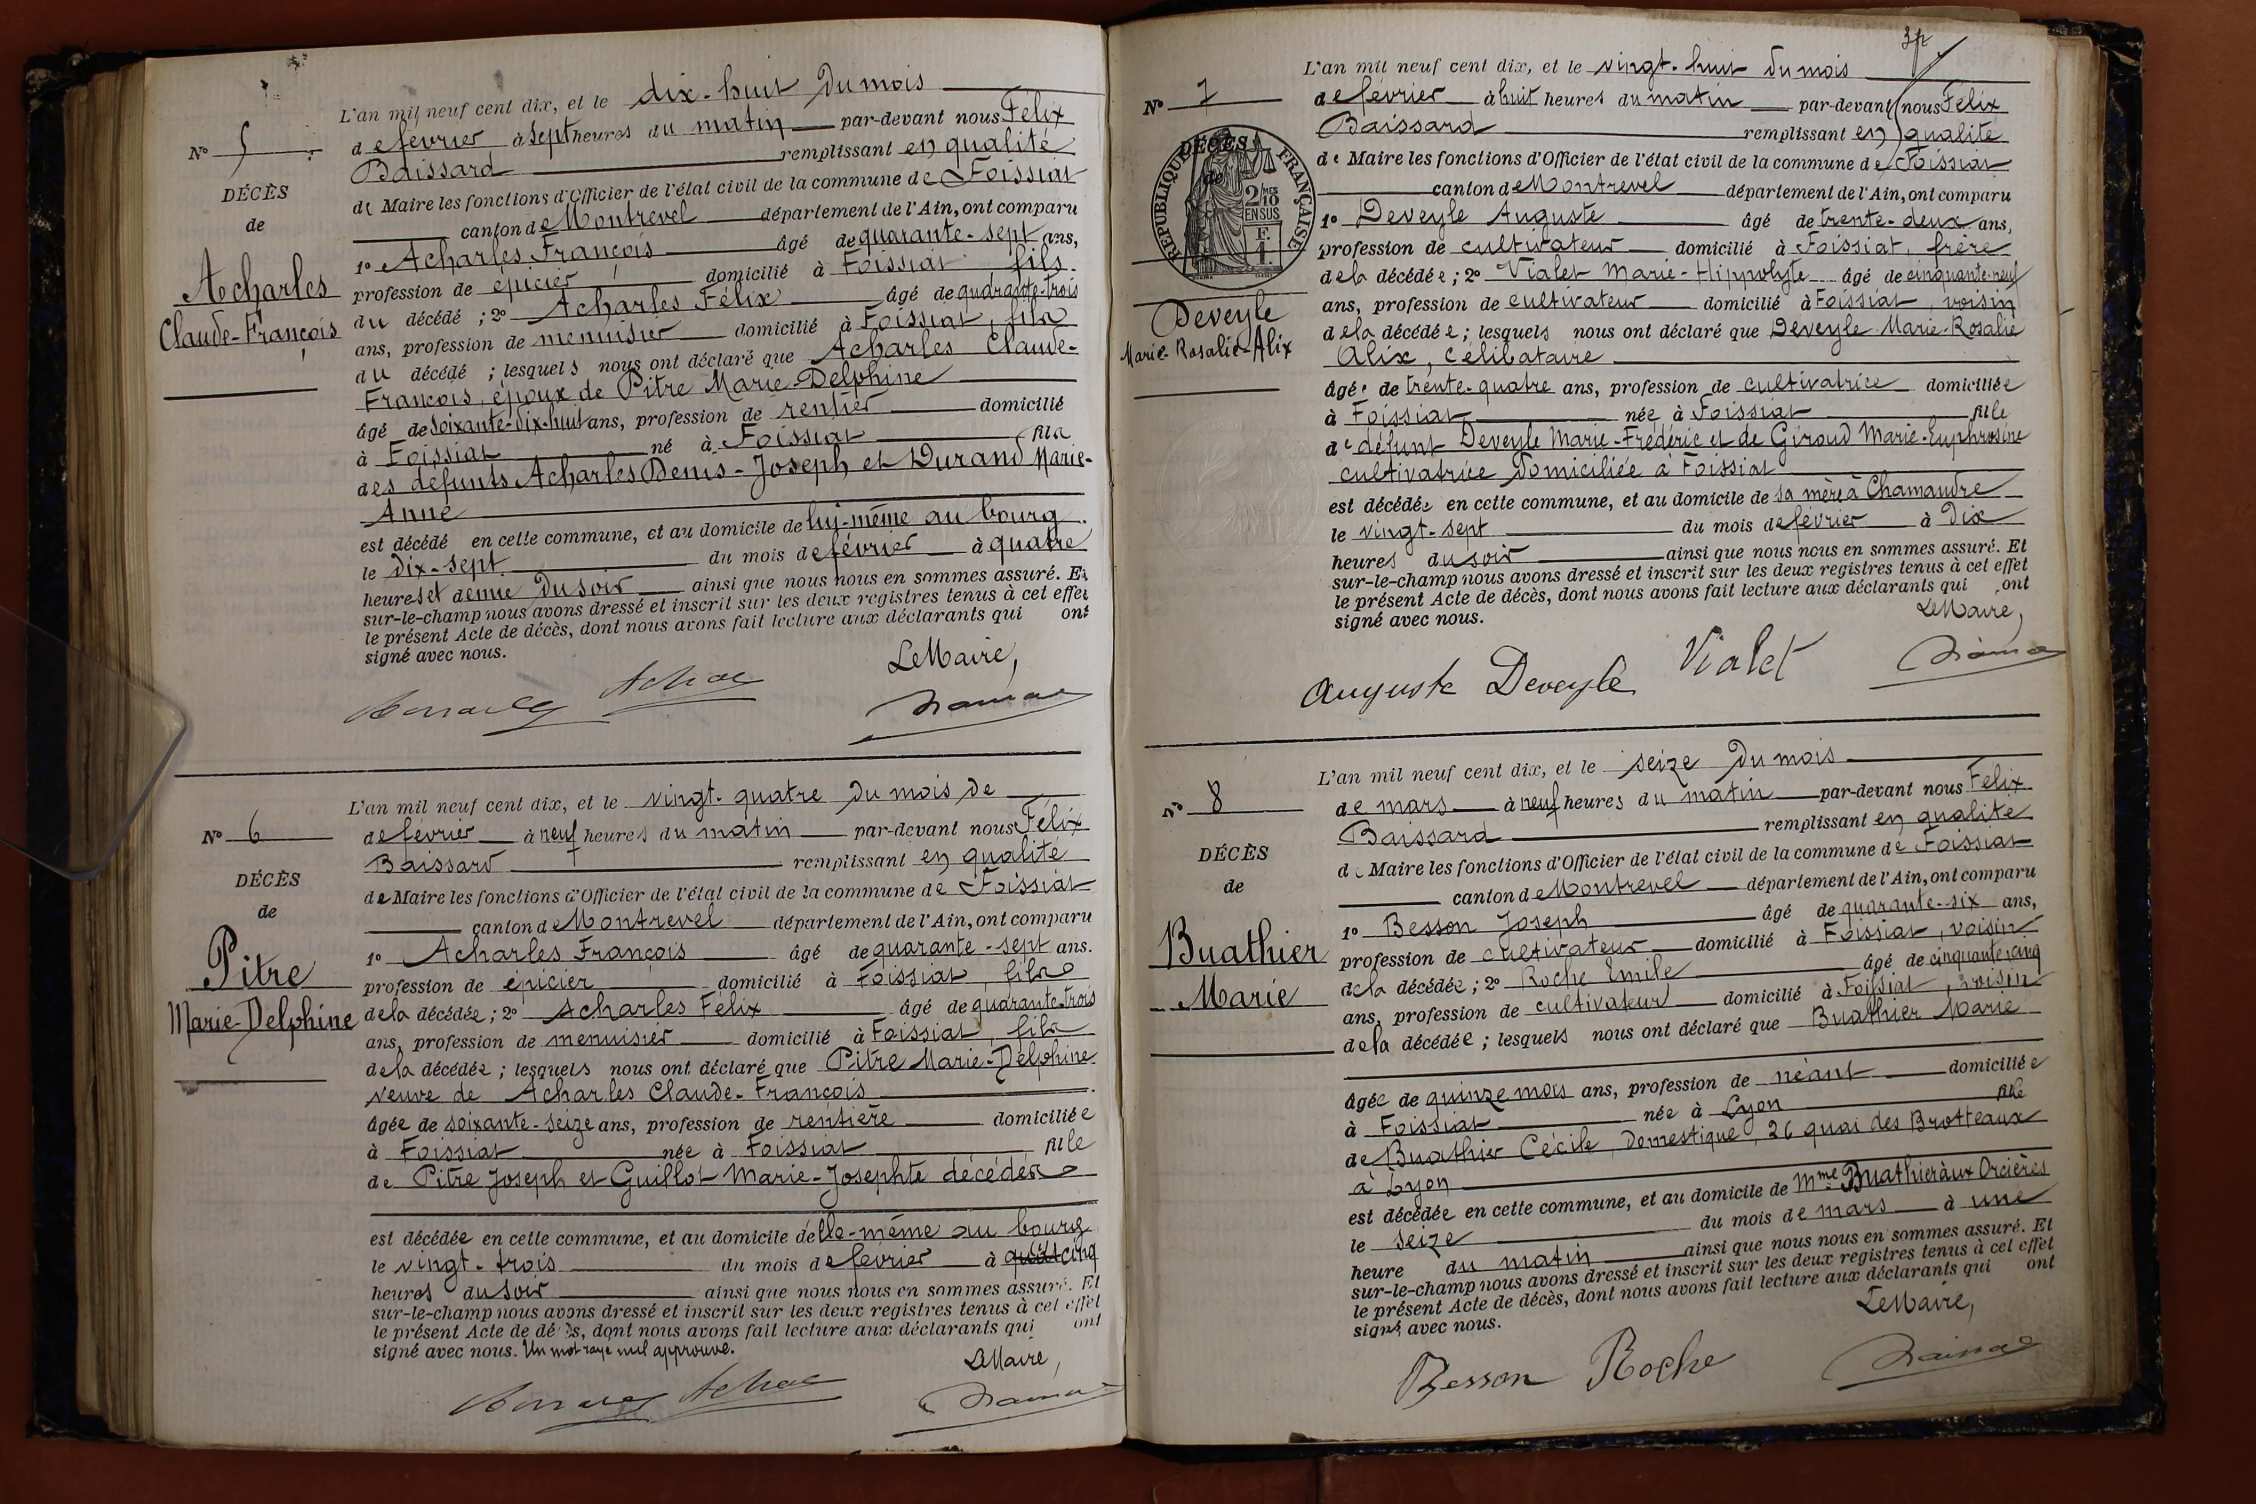 N° 5
DÉCÈS
de
Acharles
Claude-François
L'an mil neuf cent dix, et le dix-huit du mois
de février à sept heures du matin par-devant nous Félix
Baissard remplissant en qualité
de Maire les fonctions d'Officier de l'état civil de la commune de Foissiat
canton de Montrevel département de l'Ain, ont comparu
1° Acharles François âgé de quarante-sept ans,
profession de épicier domicilié à Foissiat fils
du décédé ; 2° Acharles Félix âgé de quarante-trois
ans, profession de menuisier domicilié à Foissiat, fils
du décédé ; lesquels nous ont déclaré que Acharles Claude-
François, époux de Pitre Marie-Delphine
âgé de soixante-dix-huit ans, profession de rentier domicilié
à Foissiat né à Foissiat fils
des défunts Acharles Denis-Joseph et Durand Marie-
Anne
est décédé en cette commune, et au domicile de lui-même au bourg
le dix-sept du mois de février à quatre
heures et demie du soir ainsi que nous nous en sommes assuré. Et
sur-le-champ nous avons dressé et inscrit sur les deux registres tenus à cet effet
le présent Acte de décès, dont nous avons fait lecture aux déclarants qui ont
signé avec nous.
Le Maire,
N° 6
DÉCÈS
de
Pitre
Marie-Delphine
L'an mil neuf cent dix, et le vingt-quatre du mois de
de février à neuf heures du matin par-devant nous Félix
Baissard remplissant en qualité
de Maire les fonctions d'Officier de l'état civil de la commune de Foissiat
canton de Montrevel département de l'Ain, ont comparu
1° Acharles François âgé de quarante-sept ans.
profession de épicier domicilié à Foissiat, fils
de la décédée ; 2° Acharles Félix âgé de quarante-trois
ans, profession de menuisier domicilié à Foissiat, fils
de la décédée ; lesquels nous ont déclaré que Pitre Marie-Delphine
veuve de Acharles Claude-François
âgée de soixante-seize ans, profession de rentière domiciliée
à Foissiat née à Foissiat fille
de Pitre Joseph et Guillot Marie-Josephte décédés
est décédée en cette commune, et au domicile de elle-même au bourg
le vingt-trois du mois de février à cinq
heures du soir ainsi que nous nous en sommes assuré. Et
sur-le-champ nous avons dressé et inscrit sur les deux registres tenus à cet effet
le présent Acte de décès, dont nous avons fait lecture aux déclarants qui ont
signé avec nous. Un mot rayé nul approuvé.
Le Maire,
N° 7
DÉCÈS
de
RÉPUBLIQUE FRANÇAISE
2/10 EN SUS
Deveyle
Marie-Rosalie-Alix
L'an mil neuf cent dix, et le vingt-huit du mois
de février à huit heures du matin par-devant nous Félix
Baissard remplissant en qualité
de Maire les fonctions d'Officier de l'état civil de la commune de Foissiat
canton de Montrevel département de l'Ain, ont comparu
1° Deveyle Auguste âgé de trente-deux ans,
profession de cultivateur domicilié à Foissiat, frère
de la décédée ; 2° Vialet Marie-Hippolyte âgé de cinquante-neuf
ans, profession de cultivateur domicilié à Foissiat, voisin
de la décédée ; lesquels nous ont déclaré que Deveyle Marie-Rosalie
Alix, célibataire
âgée de trente-quatre ans, profession de cultivatrice domiciliée
à Foissiat née à Foissiat fille
de défunt Deveyle Marie-Frédéric et de Giroud Marie-Euphrosine
cultivatrice domiciliée à Foissiat
est décédée en cette commune, et au domicile de sa mère à Chamandre
le vingt-sept du mois de février à dix
heures du soir ainsi que nous nous en sommes assuré. Et
sur-le-champ nous avons dressé et inscrit sur les deux registres tenus à cet effet
le présent Acte de décès, dont nous avons fait lecture aux déclarants qui ont
signé avec nous.
Le Maire,
Auguste Deveyle Vialet
N° 8
DÉCÈS
de
Buathier
Marie
L'an mil neuf cent dix, et le seize du mois
de mars à neuf heures du matin par-devant nous Félix
Baissard remplissant en qualité
de Maire les fonctions d'Officier de l'état civil de la commune de Foissiat
canton de Montrevel département de l'Ain, ont comparu
1° Besson Joseph âgé de quarante-six ans,
profession de cultivateur domicilié à Foissiat, voisin
de la décédée ; 2° Roche Emile âgé de cinquante-cinq
ans, profession de cultivateur domicilié à Foissiat, voisin
de la décédée ; lesquels nous ont déclaré que Buathier Marie
âgée de quinze mois ans, profession de néant domiciliée
à Foissiat née à Lyon fille
de Buathier Cécile, domestique, 26 quai des Brotteaux
à Lyon
est décédée en cette commune, et au domicile de Mme Buathier aux Orcières
le seize du mois de mars à une
heure du matin ainsi que nous nous en sommes assuré. Et
sur-le-champ nous avons dressé et inscrit sur les deux registres tenus à cet effet
le présent Acte de décès, dont nous avons fait lecture aux déclarants qui ont
signé avec nous.
Le Maire,
Besson Roche